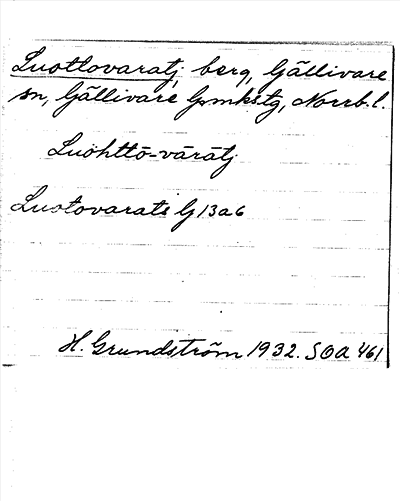 Luottovaratj, berg, Gällivare
sn, Gällivare Gmkstg, Norrb. l.
Luohttō-vārātj
Luotovarats G 13a6
H. Grundström 1932. SOA 461